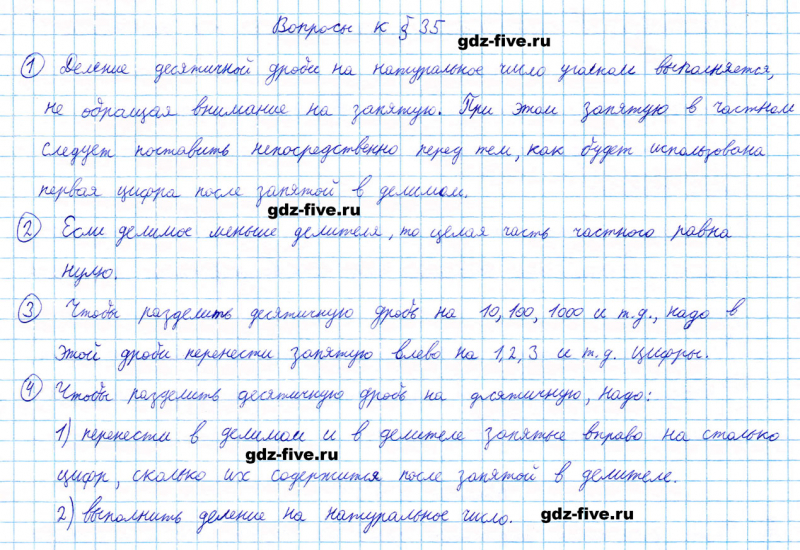 Вопросы к § 35
gdz-five.ru
1 Деление десятичной дроби на натуральное число уголком выполняется,
не обращая внимание на запятую. При этом запятую в частном
следует поставить непосредственно перед тем, как будет использована
первая цифра после запятой в делимом.
gdz-five.ru
2 Если делимое меньше делителя, то целая часть частного равна
нулю.
3 Чтобы разделить десятичную дробь на 10, 100, 1000 и т.д., надо в
этой дроби перенести запятую влево на 1, 2, 3 и т.д. цифры.
4 Чтобы разделить десятичную дробь на десятичную, надо:
1) перенести в делимом и в делителе запятые вправо на столько
gdz-five.ru
цифр, сколько их содержится после запятой в делителе.
2) выполнить деление на натуральное число.
gdz-five.ru